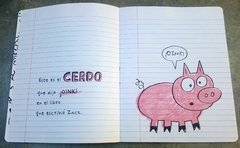 Este es el CERDO
que dijo ¡OINK!
en el libro
que escribió Zack.
¡OINK!